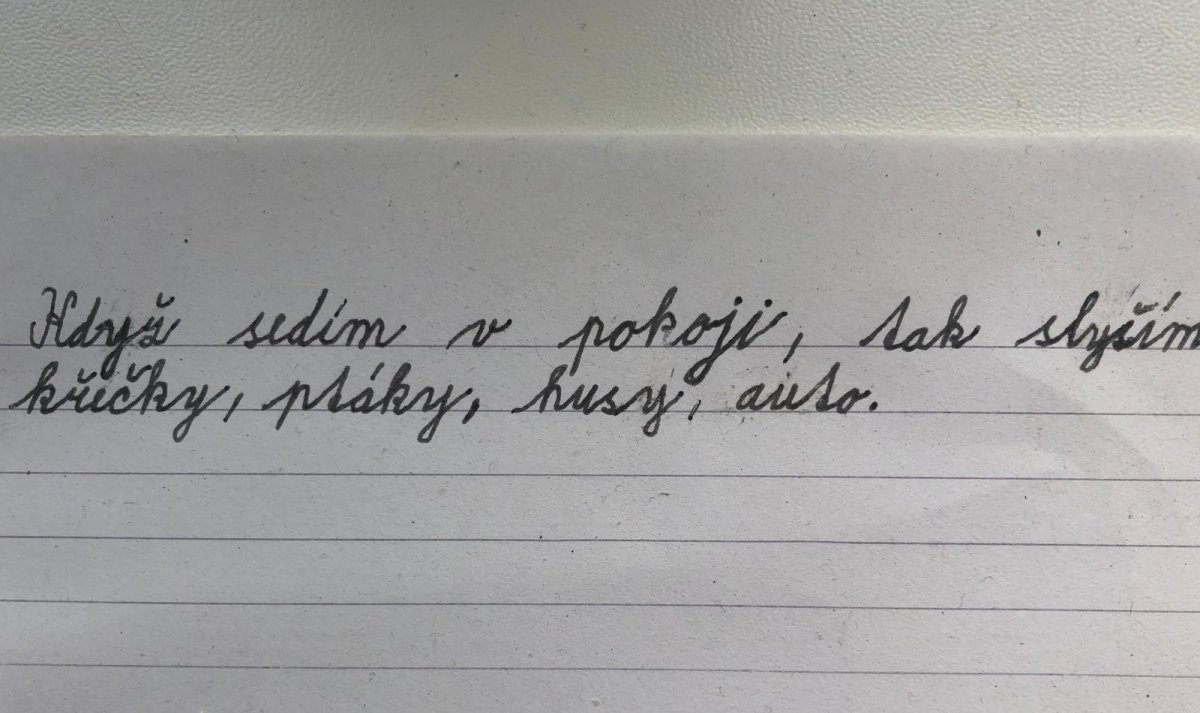 Když sedím v pokoji, tak slyším
křečky, ptáky, husy, auto.